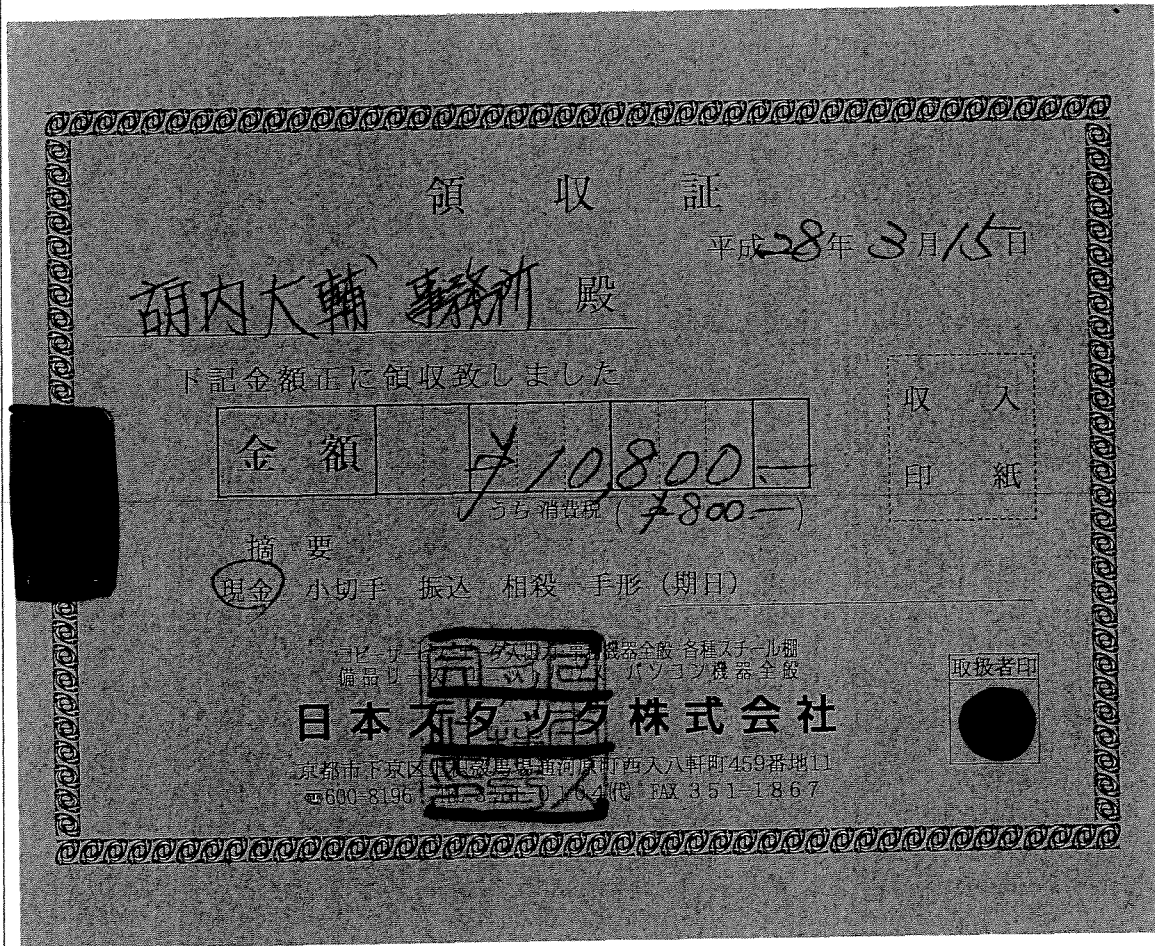 領収証
平成28年3月15日
胡内大輔 事務所 殿
下記金額正に領収致しました
収入
印紙
金額 ¥10,800.—
うち消費税(¥800.—)
摘要
現金 小切手 振込 相殺 手形(期日)
機器全般 各種スチール棚
備品リース パソコン機器全般
日本スタッグ株式会社
取扱者印
京都市下京区 通河原町西入八軒町459番地11
☎600-8196 0104代 FAX 351-1867